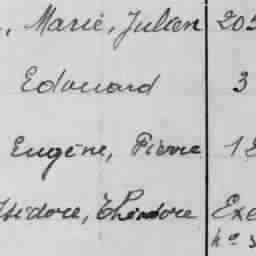 , Marie, Julien 205
Edouard 3
Eugène, Pierre 18
Isidore, Théodore Exe